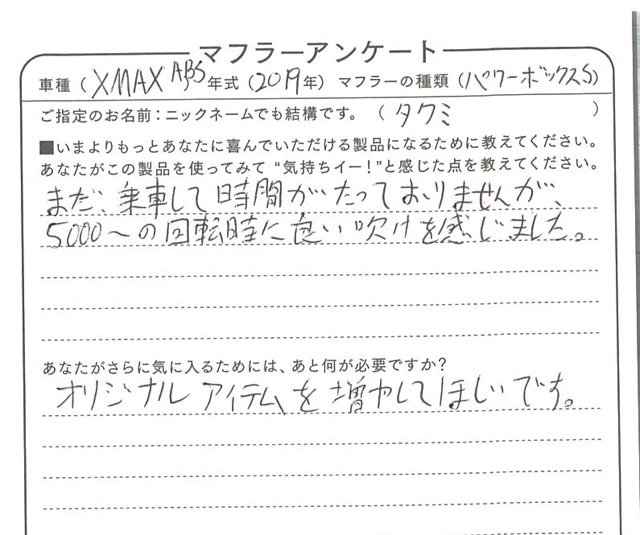 マフラーアンケート
車種(XMAX ABS 年式(2019年) マフラーの種類(パワーボックスS)
ご指定のお名前:ニックネームでも結構です。(タクミ)
■いまよりもっとあなたに喜んでいただける製品になるために教えてください。
あなたがこの製品を使ってみて“気持ちイー!”と感じた点を教えてください。
まだ、乗車して時間がたっておりませんが、
5000〜の回転時に良い吹けを感じました。
あなたがさらに気に入るためには、あと何が必要ですか?
オリジナルアイテムを増やしてほしいです。